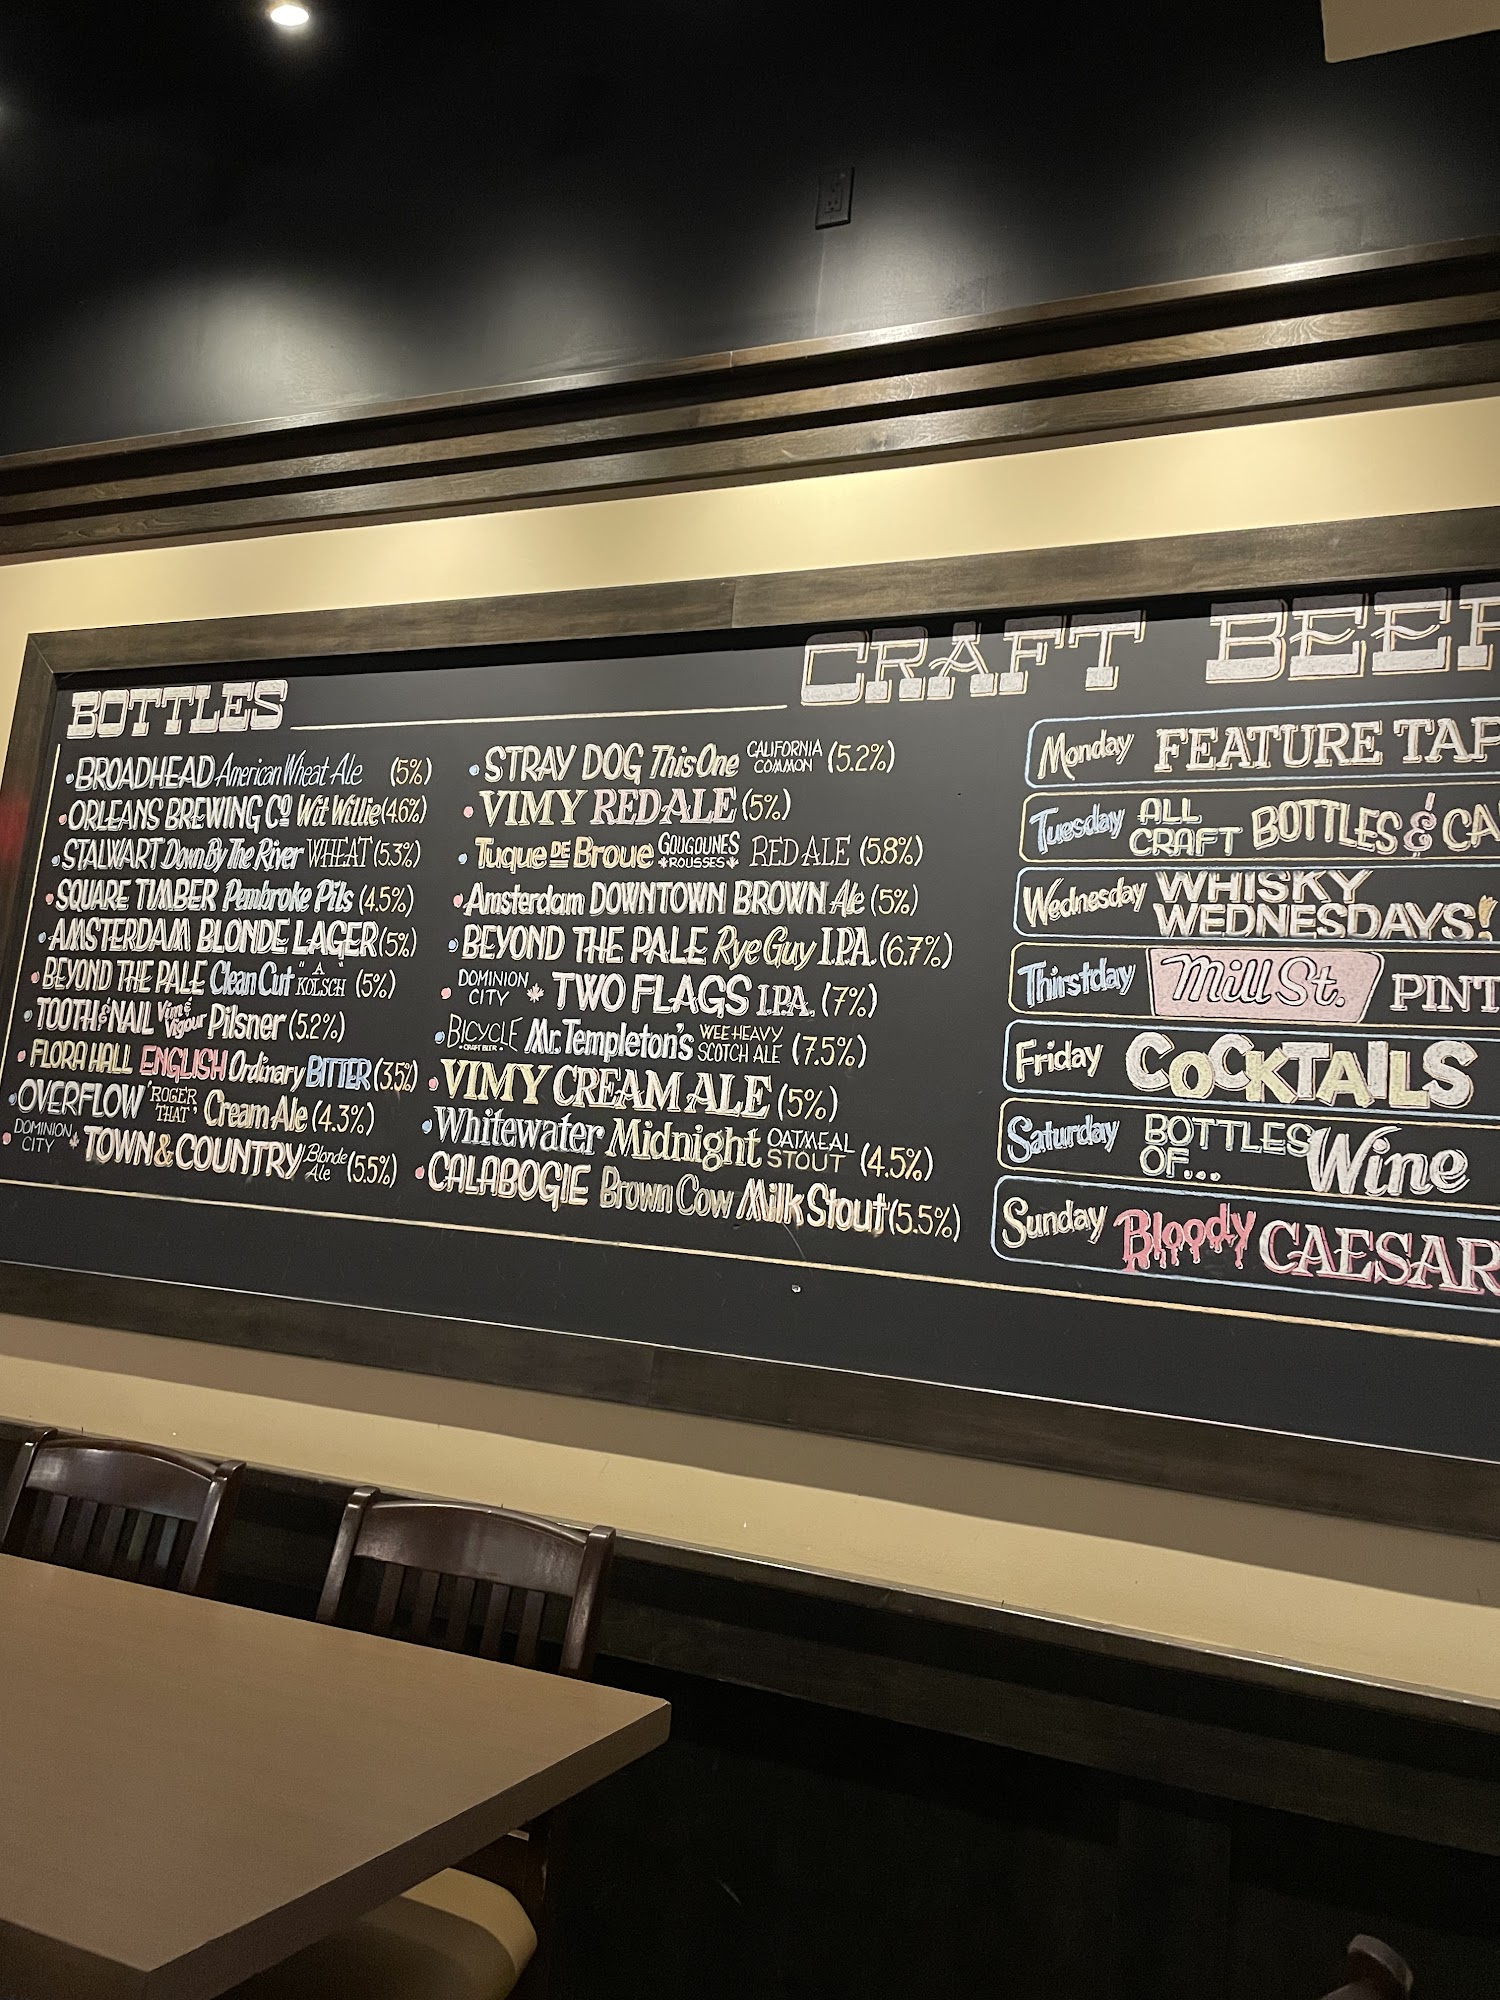 CRAFT BEER
BOTTLES
BROADHEAD American Wheat Ale (5%)
ORLEANS BREWING Co Wit Willie (4.6%)
STALWART Down By The River WHEAT (5.3%)
SQUARE TIMBER Pembroke Pils (4.5%)
AMSTERDAM BLONDE LAGER (5%)
BEYOND THE PALE Clean Cut "A KÖLSCH" (5%)
TOOTH & NAIL Vim & Vigour Pilsner (5.2%)
FLORA HALL ENGLISH Ordinary BITTER (3.5%)
OVERFLOW 'ROGER THAT' Cream Ale (4.3%)
DOMINION CITY TOWN & COUNTRY Blonde Ale (5.5%)
STRAY DOG This One CALIFORNIA COMMON (5.2%)
VIMY RED ALE (5%)
Tuque DE Broue GOUGOUNES ROUSSES RED ALE (5.8%)
Amsterdam DOWNTOWN BROWN Ale (5%)
BEYOND THE PALE Rye Guy I.P.A. (6.7%)
DOMINION CITY TWO FLAGS I.P.A. (7%)
BICYCLE CRAFT BEER Mr. Templeton's WEE HEAVY SCOTCH ALE (7.5%)
VIMY CREAM ALE (5%)
Whitewater Midnight OATMEAL STOUT (4.5%)
CALABOGIE Brown Cow Milk Stout (5.5%)
Monday FEATURE TAP
Tuesday ALL CRAFT BOTTLES & CA
Wednesday WHISKY WEDNESDAYS!
Thirstday Mill St. PINT
Friday COCKTAILS
Saturday BOTTLES OF... Wine
Sunday Bloody CAESAR